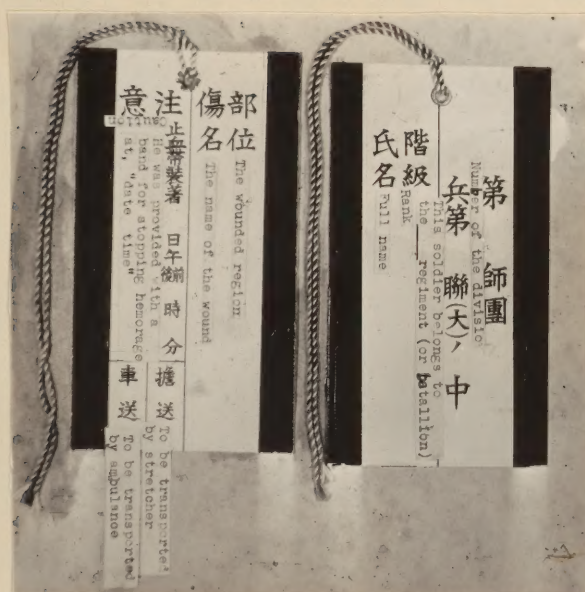 第 師團
Number of the divisio
兵第 聯(大)ノ 中
This soldier belongs to
the regiment (or batallion)
階級
Rank
氏名
Full name
部位
The wounded region
傷名
The name of the wound
注意
Caution
止血帶装著 日午前後 時 分
He was provided with a
band for stopping hemorage
at, "date time"
擔送
To be transported
by stretcher
車送
To be transported
by ambulance